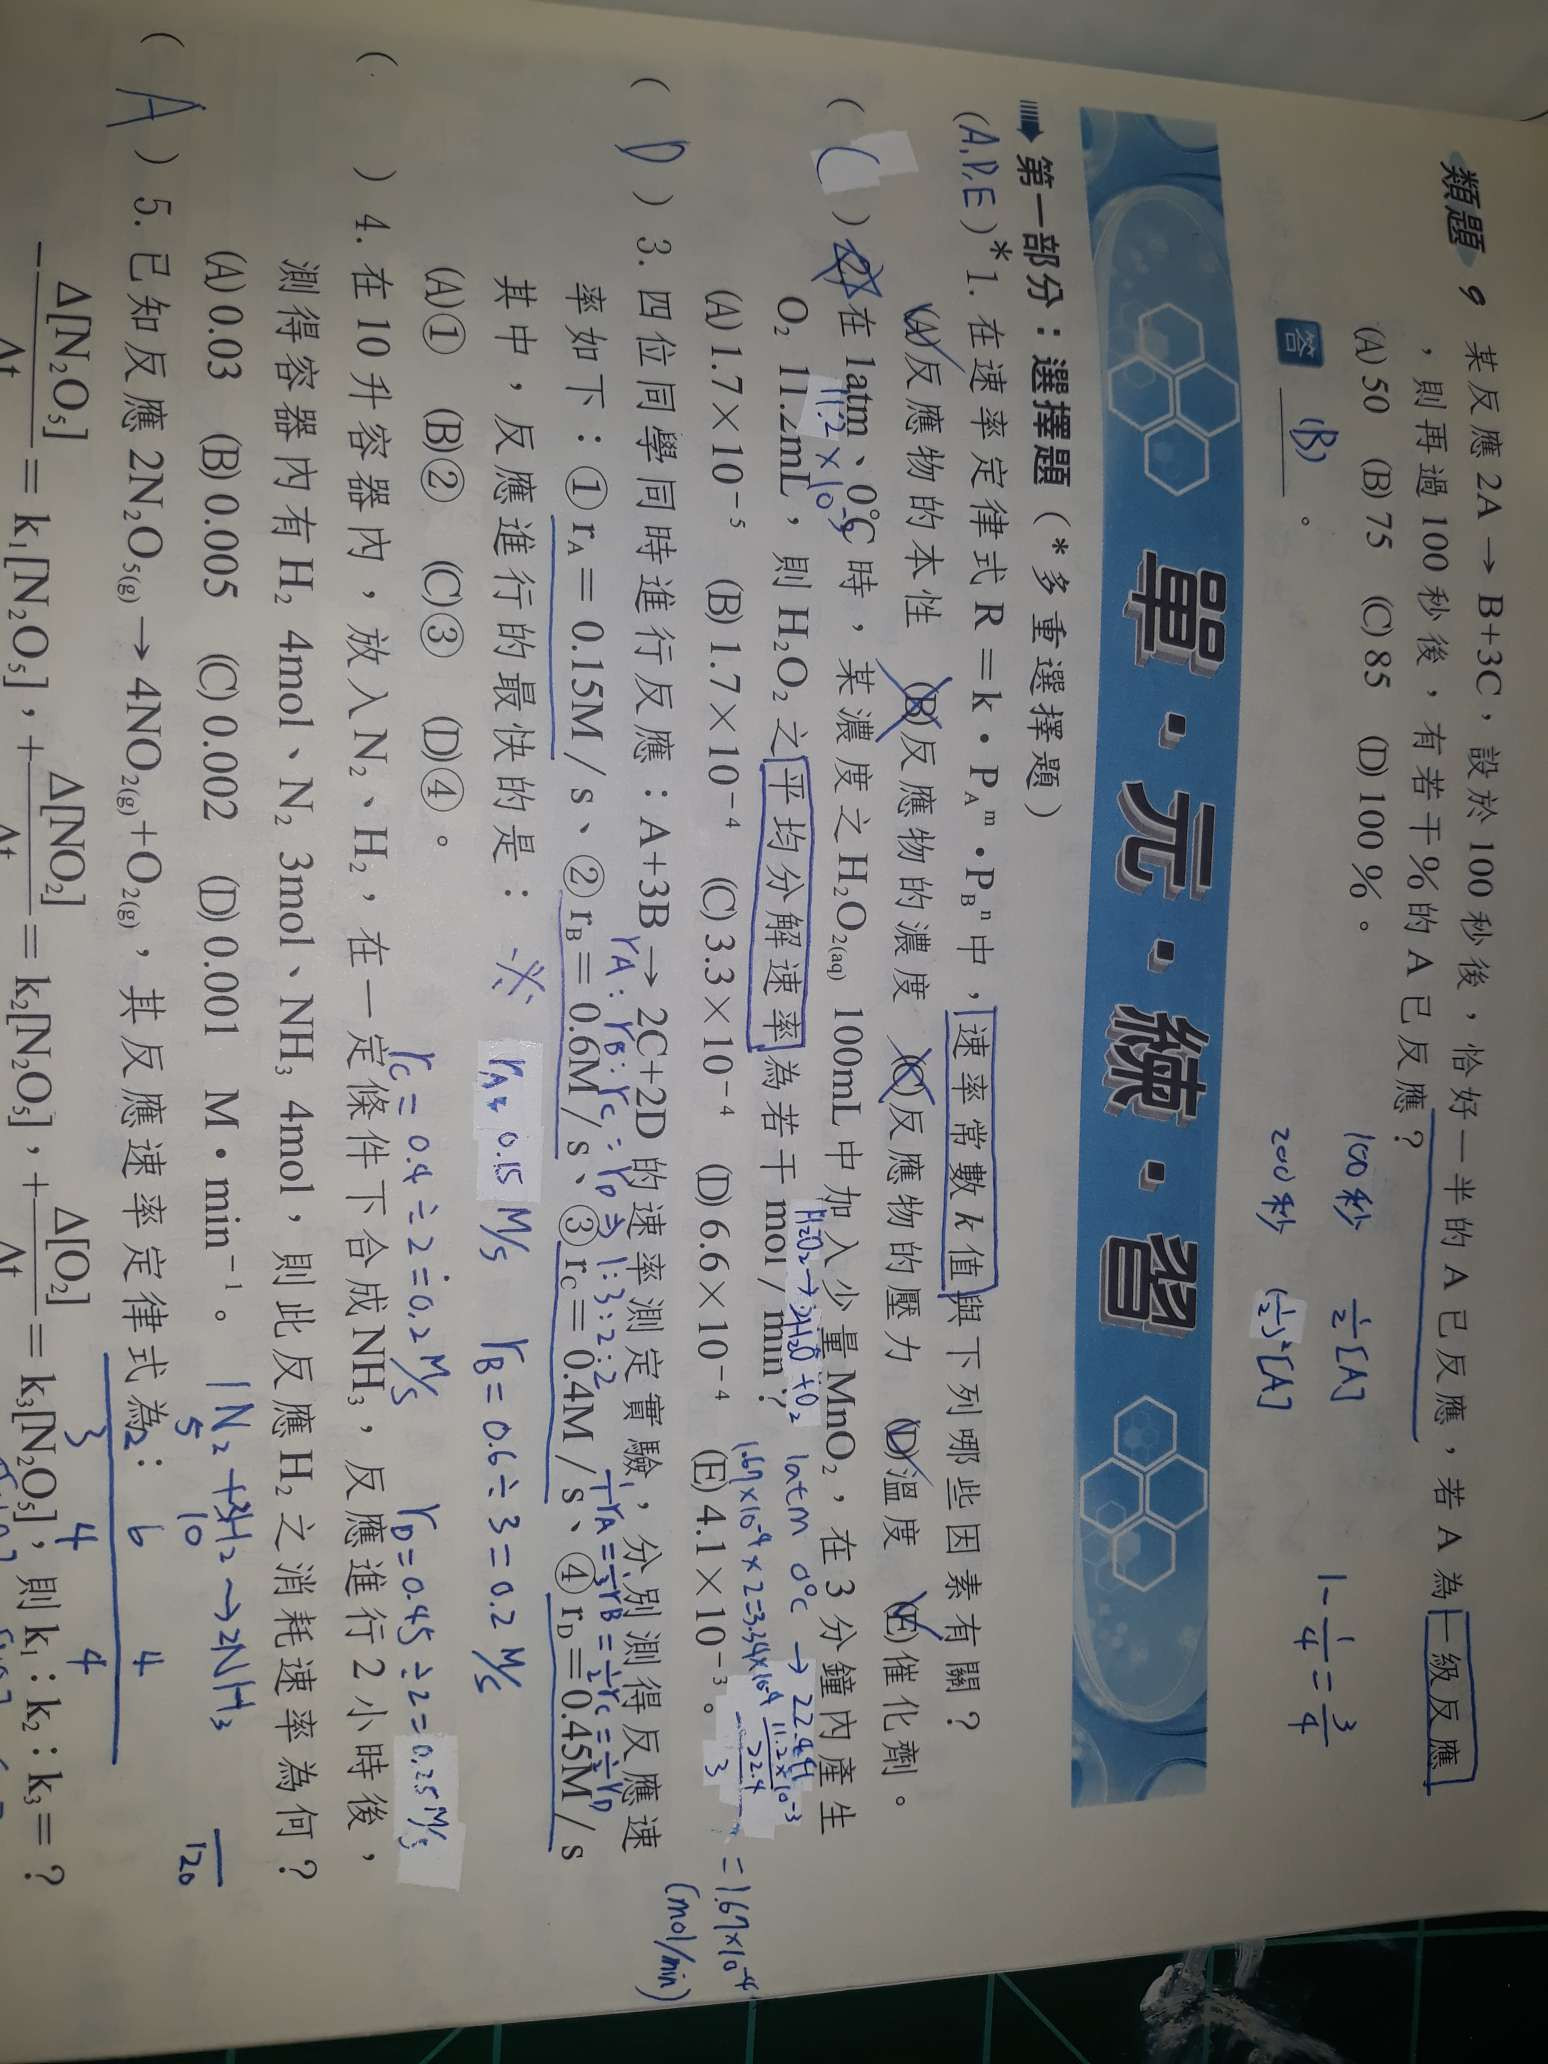 類題 9 某反應 2A → B+3C，設於 100 秒後，恰好一半的 A 已反應，若 A 為一級反應
，則再過 100 秒後，有若干％的 A 已反應？
(A) 50 (B) 75 (C) 85 (D) 100 ％。
100秒 ½[A]
200秒 (½)²[A]
1-1/4=3/4
答 (B) 。
單・元・練・習
第一部分：選擇題（＊多重選擇題）
(A,D,E)*1. 在速率定律式 R＝k・P_A^m・P_B^n 中，速率常數 k 值與下列哪些因素有關？
(A)反應物的本性 (B)反應物的濃度 (C)反應物的壓力 (D)溫度 (E)催化劑。
( C ) 2. 在 1atm、0℃ 時，某濃度之 H₂O₂(aq) 100mL 中加入少量 MnO₂，在 3 分鐘內產生
11.2×10⁻³
H₂O₂→ H₂O+O₂ 1atm 0°C → 22.4
O₂ 11.2mL，則 H₂O₂ 之平均分解速率為若干 mol / min？
1.67×10⁻⁴×2=3.34×10⁻⁴
11.2×10⁻³/22.4
3
=1.67×10⁻⁴
(mol/min)
(A) 1.7×10⁻⁵ (B) 1.7×10⁻⁴ (C) 3.3×10⁻⁴ (D) 6.6×10⁻⁴ (E) 4.1×10⁻³。
( D ) 3. 四位同學同時進行反應：A+3B → 2C+2D 的速率測定實驗，分別測得反應速
rA:rB:rC:rD⇒1:3:2:2
1/1 rA=1/3 rB=1/2 rC=1/2 rD
率如下：① r_A＝0.15M / s、② r_B＝0.6M / s、③ r_C＝0.4M / s、④ r_D＝0.45M / s
其中，反應進行的最快的是：
※ rA= 0.15 M/s rB=0.6÷3=0.2 M/s
(A)① (B)② (C)③ (D)④。
rC=0.4÷2=0.2M/s rD=0.45÷2=0.25M/s
( ) 4. 在 10 升容器內，放入 N₂、H₂，在一定條件下合成 NH₃，反應進行 2 小時後，
測得容器內有 H₂ 4mol、N₂ 3mol、NH₃ 4mol，則此反應 H₂ 之消耗速率為何？
(A) 0.03 (B) 0.005 (C) 0.002 (D) 0.001 M・min⁻¹。
1N₂+3H₂→2NH₃
5 10
2 6 4
3 4 4
120
( A ) 5. 已知反應 2N₂O₅(g) → 4NO₂(g)+O₂(g)，其反應速率定律式為：
−Δ[N₂O₅]/Δt＝k₁[N₂O₅]，+Δ[NO₂]/Δt＝k₂[N₂O₅]，+Δ[O₂]/Δt＝k₃[N₂O₅]，則 k₁：k₂：k₃＝？